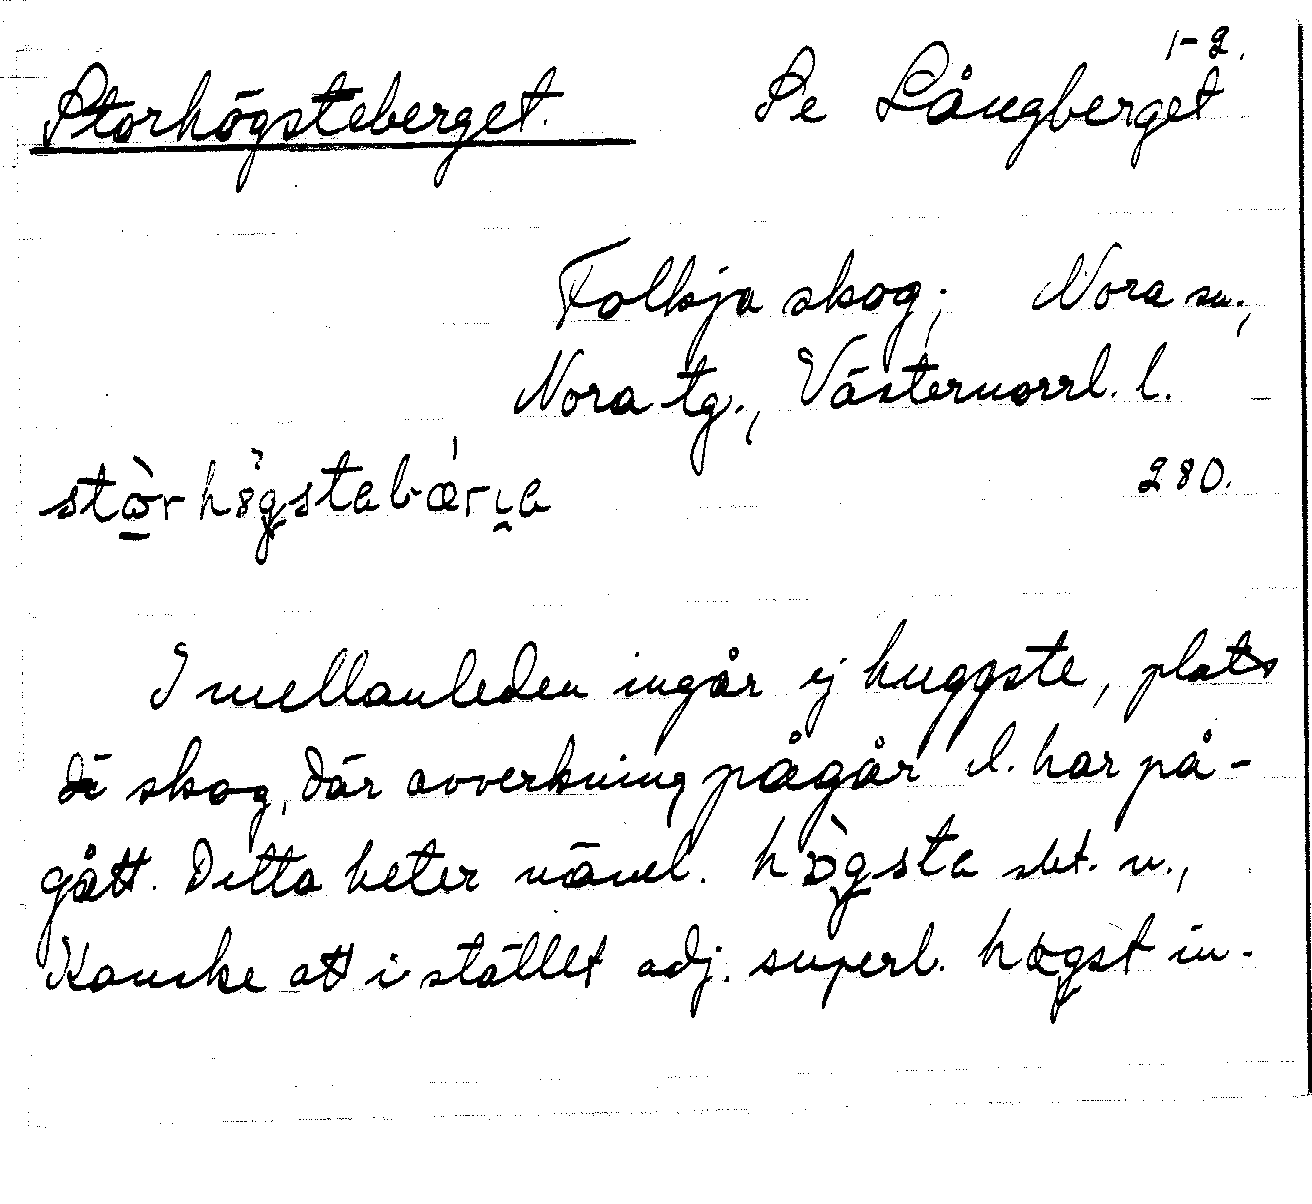 1-2.
Storhögsteberget. Se Långberget
Folkja skog; Nora sn.,
Nora tg., Västernorrl. l.
280.
stòrhö̀gstabǽrıa
I mellanleden ingår ej huggste, plats
i skog, där avverkning pågår l. har på-
gått. Detta heter näml. hö̀gsta sbt. n.,
Kanske att i stället adj. superl. högst in-